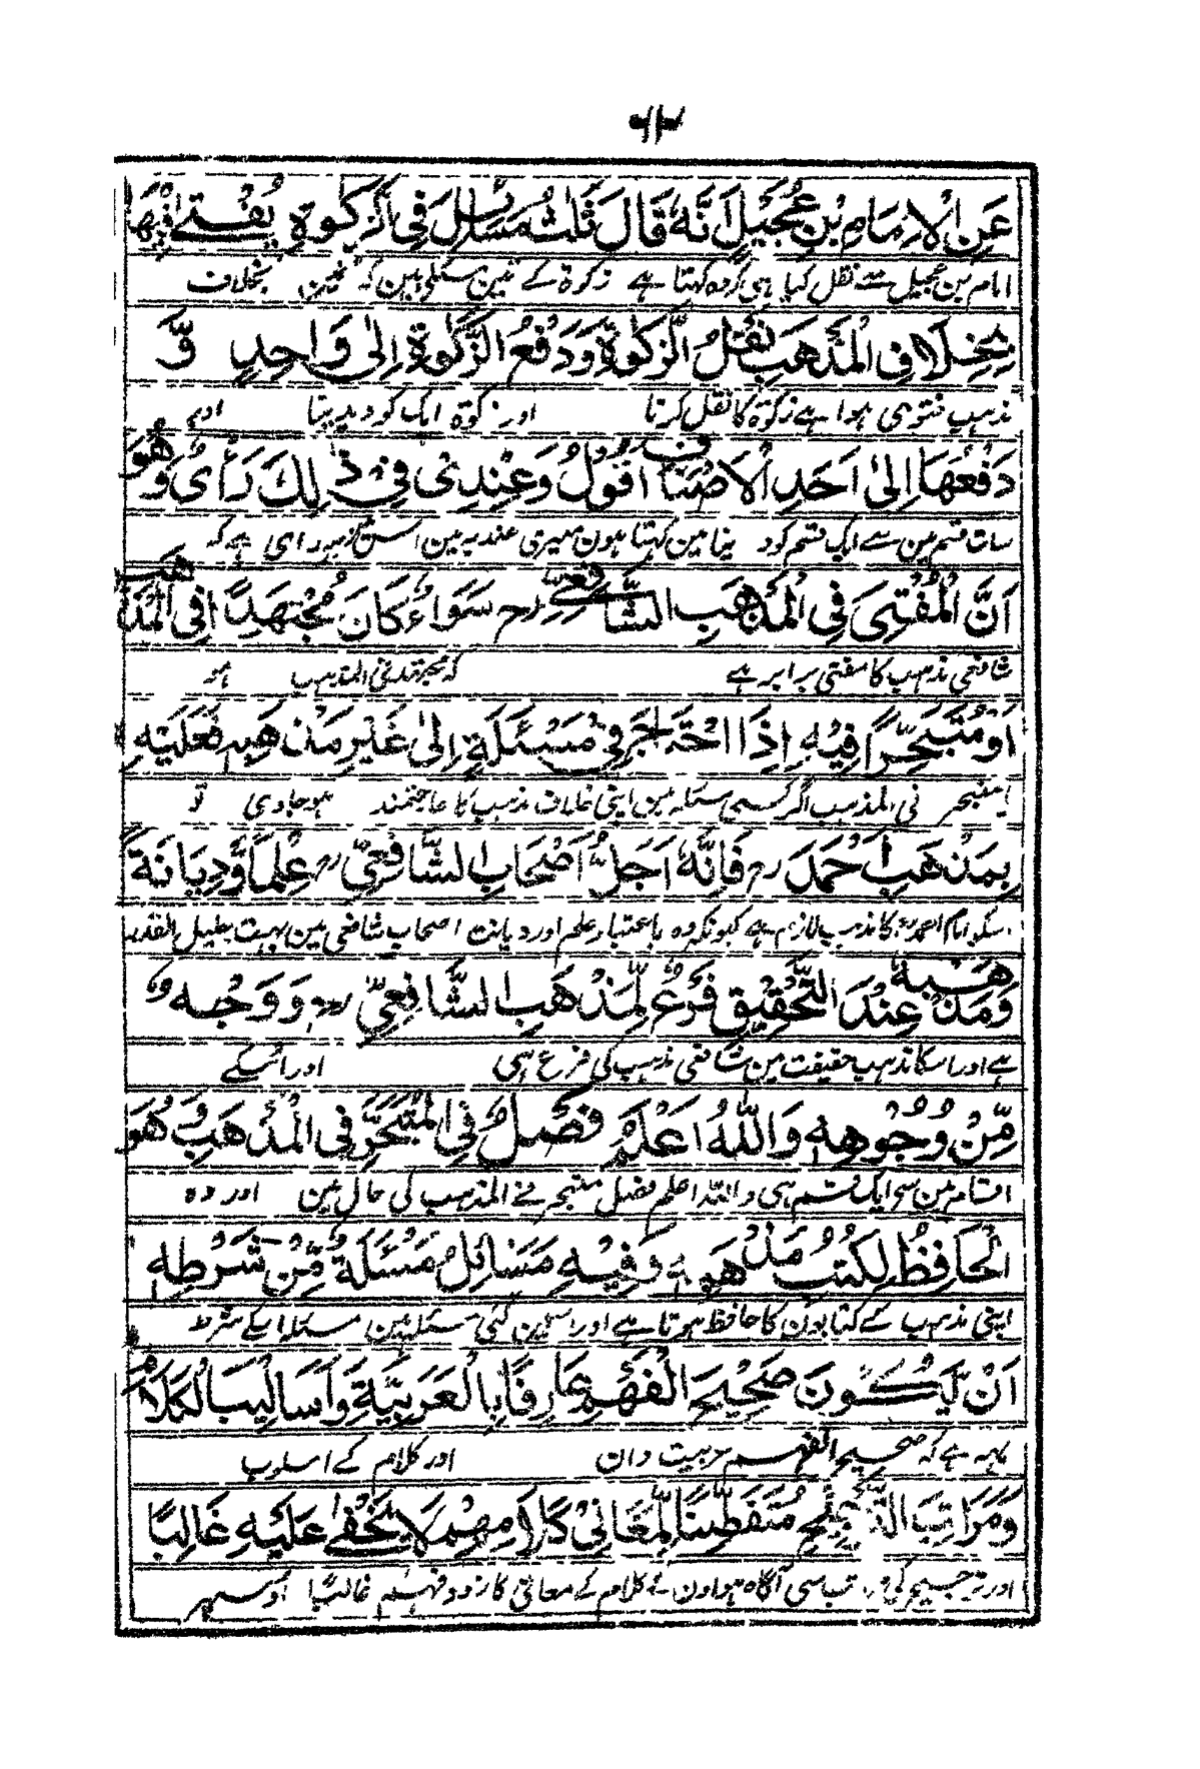 عَنِ الْاِمَامِ بْنِ عُجَيْلٍ اَنَّهٗ قَالَ ثَلٰثُ مَسَائِلَ فِی الزَّکٰوةِ يُفْتٰی فِيْهَا
امام بن عجیل سے نقل کیا ہی کہ وہ کہتا ہے زکوة کے تین مسئلی ہین کہ بخلاف
بِخِلَافِ الْمَذْهَبِ نَقْلُ الزَّکٰوةِ وَدَفْعُ الزَّکٰوةِ اِلٰی وَاحِدٍ وَّ
مذہب فتوی ہوا ہے زکوة کا نقل کرنا اور زکوة ایک کو دیدینا اور
دَفْعُهَا اِلٰی اَحَدِ الْاَصْنَافِ اَقُوْلُ وَعِنْدِیْ فِیْ ذٰلِكَ رَأْیٌ وَهُوَ
سات قسم مین سے ایک قسم کو دینا مین کہتا ہون میری عندیہ مین اسکی رای ہے کہ
اَنَّ الْمُفْتِیَ فِی الْمَذْهَبِ الشَّافِعِیِّ رح سَوَاءٌ کَانَ مُجْتَهِدًا فِی الْمَذْهَبِ
شافعی مذہب کا مفتی برابر ہے کہ مجتہد فی المذہب ہو
اَوْ مُتَبَحِّرًا فِيْهِ اِذَا احْتَاجَ فِیْ مَسْئَلَةٍ اِلٰی غَيْرِ مَذْهَبِهٖ فَعَلَيْهِ
یا متبحر فی المذہب اگر کسی مسئلہ مین اپنی خلاف مذہب کا حاجتمند ہو جاوی تو
بِمَذْهَبِ اَحْمَدَ رح فَاِنَّهٗ اَجَلُّ اَصْحَابِ الشَّافِعِیِّ رح عِلْمًا وَّدِيَانَةً
اسکو امام احمد کا مذہب لازم ہے کیونکہ وہ باعتبار علم اور دیانت اصحاب شافعی مین بہت جلیل القدر
وَمَذْهَبُهٗ عِنْدَ التَّحْقِيْقِ فَرْعٌ لِّمَذْهَبِ الشَّافِعِیِّ رح وَوَجْهٌ
ہے اور اسکا مذہب حقیقت مین شافعی مذہب کی فرع ہی اور اسکے
مِّنْ وُجُوْهِهٖ وَاللّٰهُ اَعْلَمُ فَصْلٌ فِی الْمُتَبَحِّرِ فِی الْمَذْهَبِ وَهُوَ
اقسام مین سی ایک قسم ہی واللہ اعلم فصل متبحر فی المذہب کی حال مین اور وہ
الْحَافِظُ لِکُتُبِ مَذْهَبِهٖ وَفِيْهِ مَسَائِلُ مَسْئَلَةٌ مِّنْ شَرْطِهٖ
اپنی مذہب کے کتابون کا حافظ ہوتا ہے اور اسمین کئی مسئلے ہین مسئلہ اسکے شرط
اَنْ يَّکُوْنَ صَحِيْحَ الْفَهْمِ عَارِفًا بِالْعَرَبِيَّةِ وَاَسَالِيْبِ الْکَلَامِ
یہہ ہے کہ صحیح الفہم عربیت دان اور کلام کے اسلوب
وَمَرَاتِبَ التَّرْجِيْحِ مُتَفَطِّنًا لِّمَعَانِیْ کَلَامِهِمْ لَا يَخْفٰی عَلَيْهِ غَالِبًا
اور ترجیح کی مراتب سی آگاہ ہو اون کے کلام کے معانی کا زود فہم غالبًا اوسپر